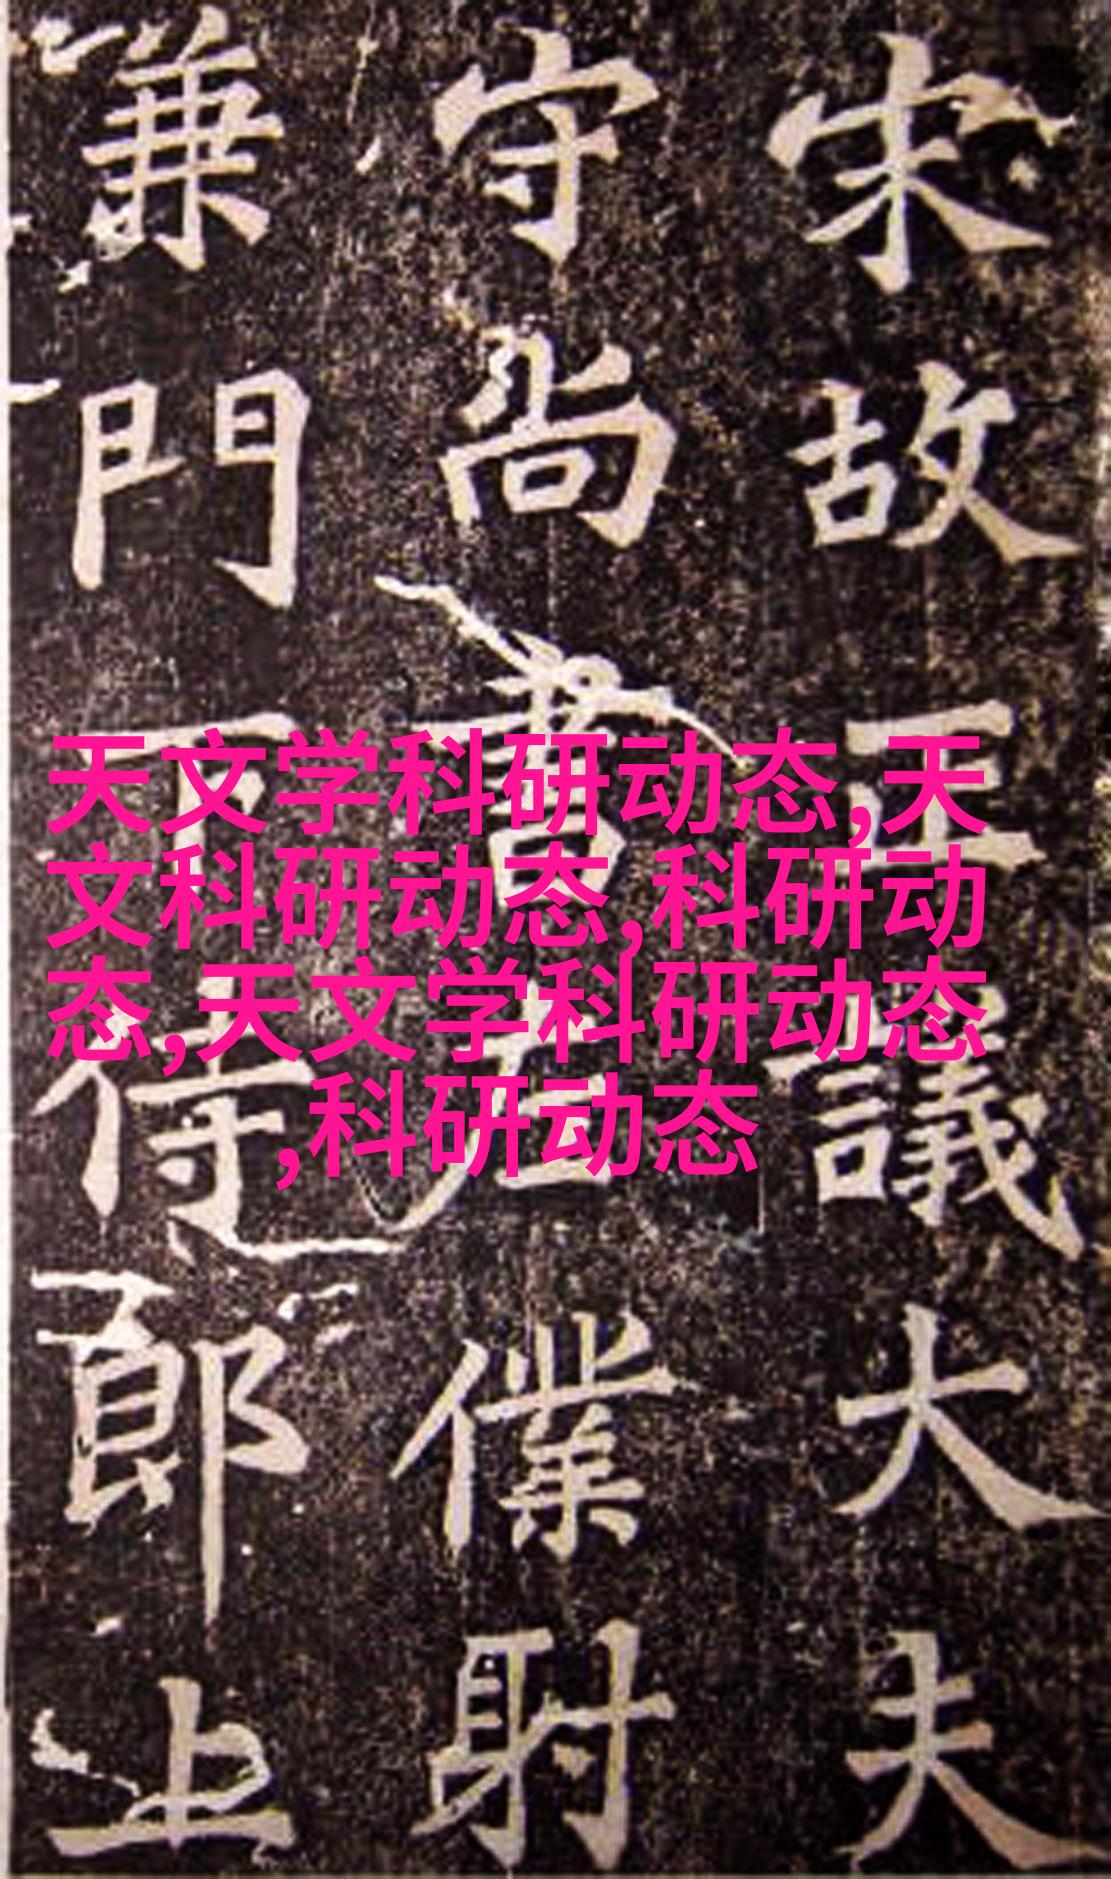 宋故正議大夫
守尚書右僕射
兼門下侍郎上
天文学科研动态,天
文科研动态,科研动
态,天文学科研动态
,科研动态